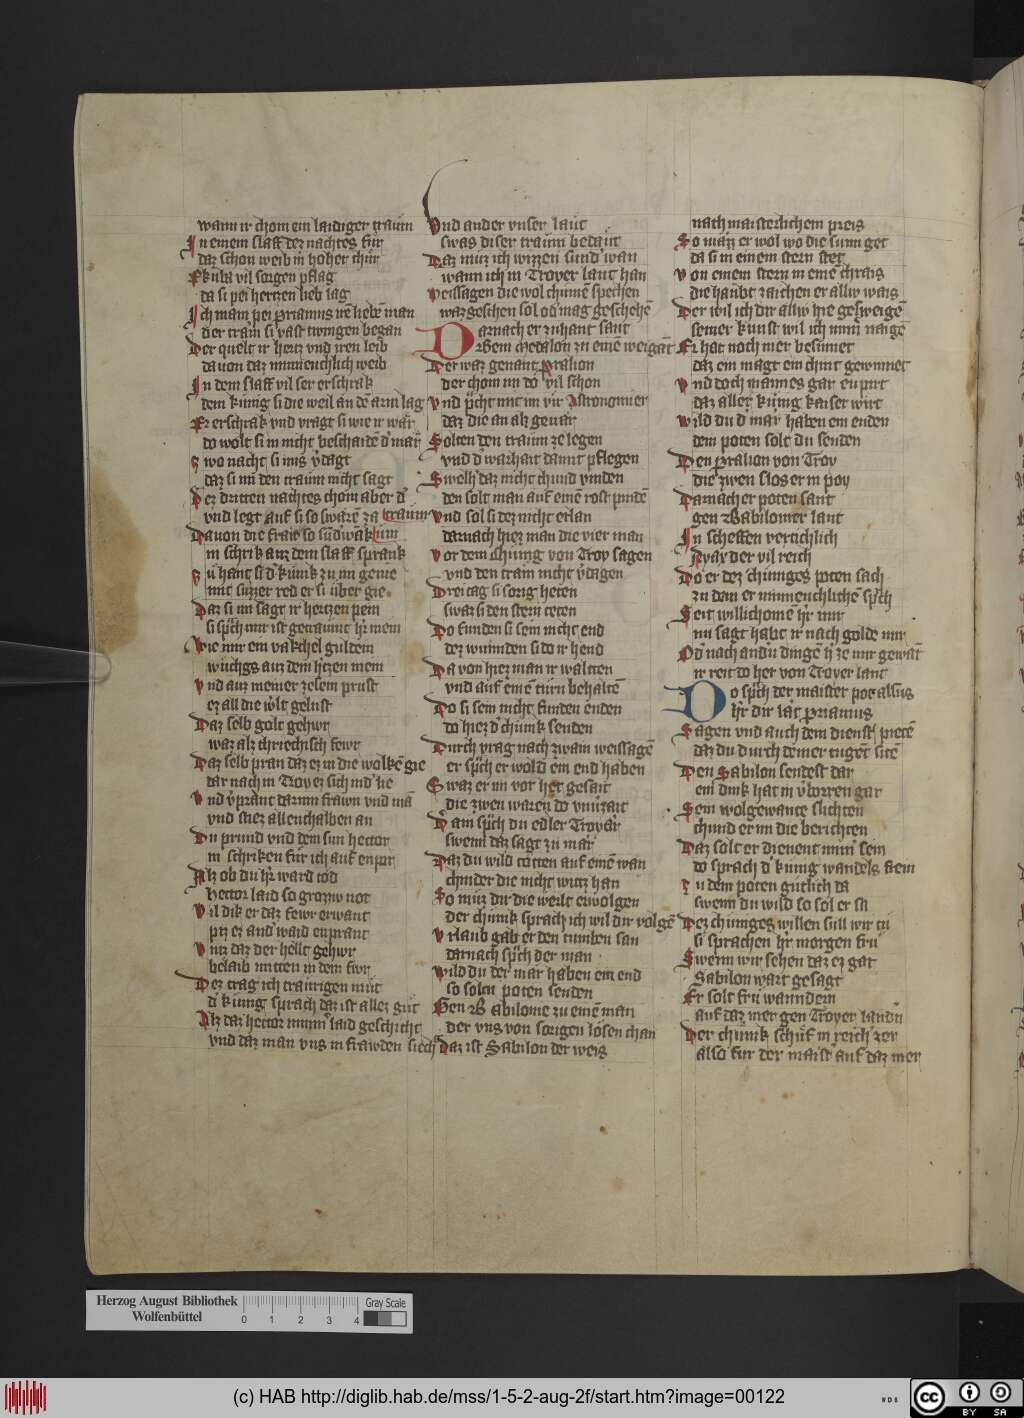 wann ir chom ein laidiger traum
In einem slaff dez nachtes fur
daz schon weib in hoher chur
Ekuba vil sorgen pflag
da si pei hertzen lieb lag
Ich main pei priamus irē liebē man
der traim si vast twingen began
Der quelt ir hertz vnd iren leib
da uon daz minnenchlich weib
In dem slaff vil ser erschrak
dem kunig si die weil an dē arm lag
Er erschrak vnd vragt si wie ir wär
do wolt si im nicht beschaide d mär
Zwo nacht si ims vdagt
daz si im den traum nicht sagt
Dez dritten nachtes chom aber d
vnd legt auf si so swarē za traum
Dauon die fraw so
in schrik auz dem slaff sprank
Zu hant si d kunk zu im genie
mit suzzer red er si uber gie
Daz si im sagt ir hertzen pein
si spch mir ist getraumt hr mein
Wie mir ein vakchel guldem
wuchgs auz dem htzen mein
Vnd auz meiner zesem prust
ez all die wlt gelust
Daz selb golt gehwr
waz alz chriechisch fewr
Daz selb pran daz ez in die wolkē gie
dar nach in Troy ez sich nid lie
Vnd vprant darinn frawn vnd mā
vnd stiez allenthalben an
Du priund vnd dem sun hector
in schriken fur ich auf enpor
Alz ob du hr ward tod
hector laid so grozzw not
Vil dik er daz fewr erwant
piz ez and ward enprant
Vntz daz der hellt gehwr
belaib mitten in dem fwr
Dez trag ich traurigen mut
d kunig sprach daz ist allez gut
Alz daz hector nimm laid geschicht
vnd daz man vns in frawden siech
Vnd ander vnser laut
swas diser traum bedaut
Daz muz ich wizzen sund wan
wann ich in Troyer lant han
Weissagen die wol chunnē spechen
waz geschen sol od mag geschehē
Darnach er zuhant sant
Gem Medalon zu einē weigāt
Der waz genant Pralion
der chom im do vil schon
Vnd pcht mit im vir Astronomier
daz die an alz geuar
Solten den traum ze legen
vnd d warhait damit pflegen
Swelh daz nicht chund vinden
den solt man auf einē rost pindē
Vnd sol si dez nicht erlan
darnach hiez man die vier man
Vor dem chunig von Troy sagen
vnd den traim nicht vdagen
Drei tag si sorig heten
swar si den stern teten
Do funden si sein nicht end
dez wunnden si do ir hend
Da von hiez man ir waltten
vnd auf einē turn behaltē
Do si sein nicht funden enden
do hiez d chunk senden
Durch vrag nach zwain weissagē
er spch er wold ein end haben
Swaz er im vor het gesait
die zwen waren do vnuzait
Der ain spch du edler Troyar
swenn daz sagt zu mar
Daz du wild totten auf einē wan
chinder die nicht witz han
So muz dir die weilt euolgen
der chunk sprach ich wil dir volgē
Vrlaub gab er den tumben san
darnach spch der man
Wild du der mar haben ein end
so soltu poten senden
Gen Babilonie zu einē man
der vns von sorigen losen chan
Daz ist Sabilon der weis
nach maisterlichem preis
So waiz er wol wo die sunn get
da si in einem stern stet
Von einem stern in einē chrais
die haubt zaichen er allw wais
Der wil ich dir allw hie gesweigē
seiner kunst wil ich nim naigē
Er hat noch mer besinnet
daz ein magt ein chint gewinnet
Vnd doch mannes gar enpirt
daz aller kunig kaiser wirt
Wild du d mar haben ein enden
dem poten solt du senden
Den Pralion von Troy
die zwen slos er in poy
Darnach er poten sant
gen Babilonier lant
In scheffen vertichlich
Ayax der vil reich
Do er dez chuniges poten sach
zu dan er minnenchlichē spch
Seit willichomē hr mir
nu sagt habt ir nach golde mir
Od nach andn dingē h ze mir gewāt
ir reit do her von Troyer lant
Do spch der maister pot alsus
Hr dir lat Priamus
Sagen vnd auch dem dienst pietē
daz du durch deiner tugēt sitē
Den Sabilon sendest dar
ein dink hat im vborren gar
Sein wolgewante slichten
chund er im die berichten
Daz solt er dienent nim sein
do sprach d kunig wandels stein
Zu dem poten gutlich da
swenn du wild so sol er sa
Dez chuniges willen sull wir tu
si sprachen hr morgen fru
Swenn wir sehen daz ez gat
Sabilon wart gesagt
Er solt fru wann dem
auf daz mer gen Troyer landn
Der chunik schuf in reich zer
also fur der maist auf daz mer
Herzog August Bibliothek
Wolfenbüttel
0 1 2 3 4
Gray Scale
(c) HAB http://diglib.hab.de/mss/1-5-2-aug-2f/start.htm?image=00122
WDB
cc BY SA